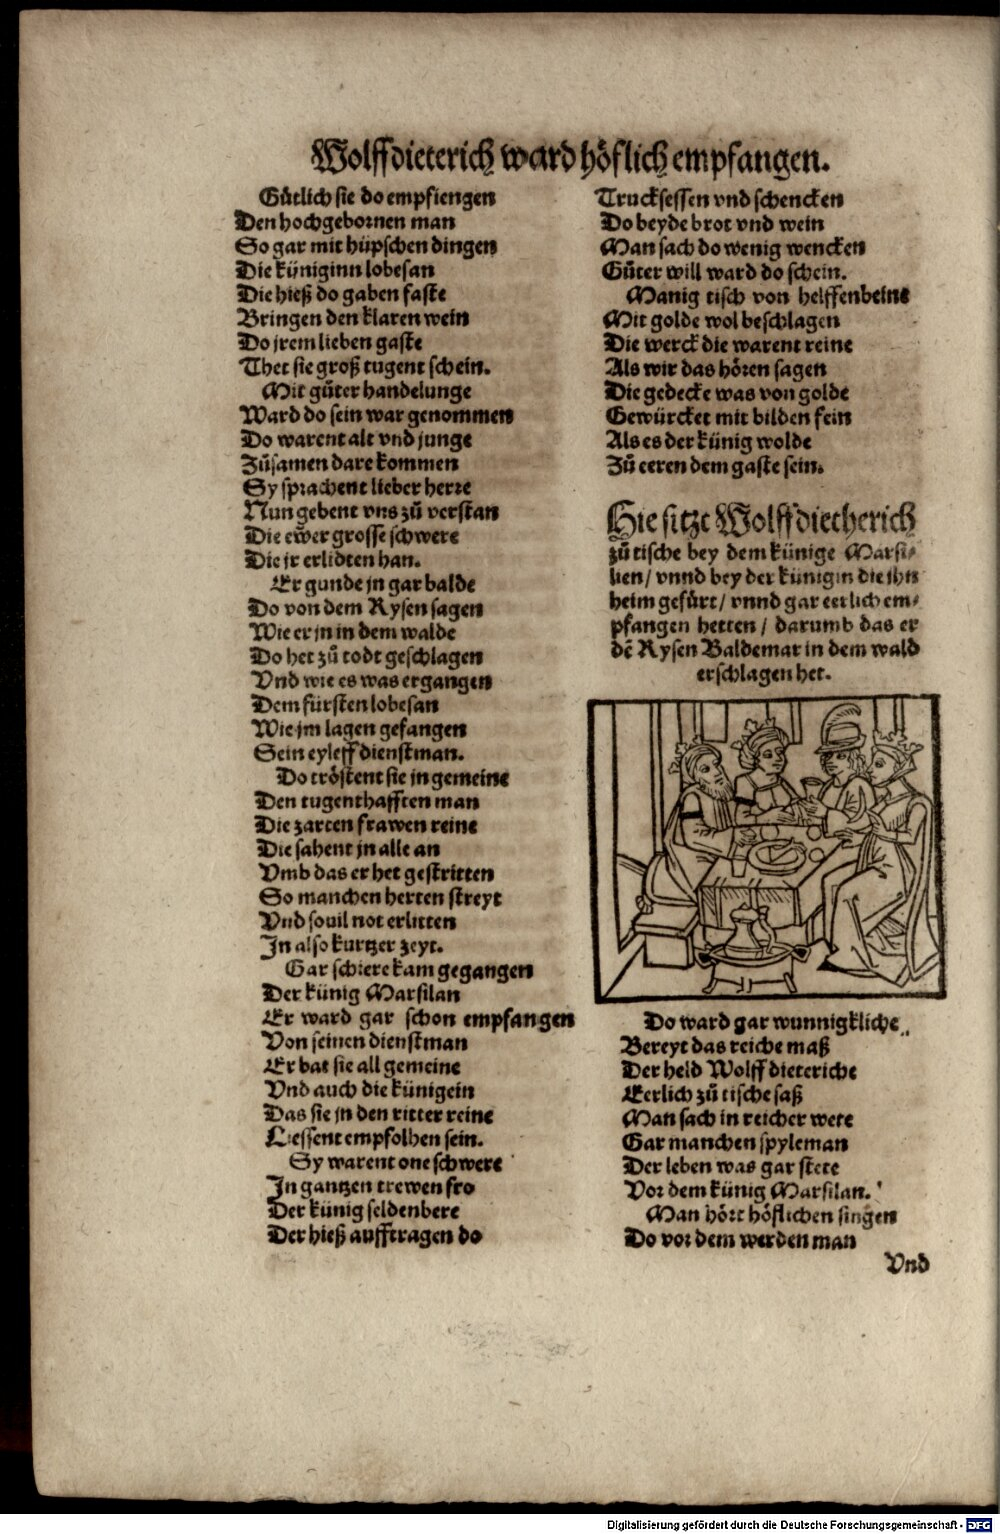 Wolffdieterich ward höflich empfangen.
Gütlich sie do empfiengen
Den hochgebornen man
So gar mit hüpschen dingen
Die küniginn lobesan
Die hieß do gaben faste
Bringen den klaren wein
Do jrem lieben gaste
Thet sie groß tugent schein.
Mit gůter handelunge
Ward do sein war genommen
Do warent alt vnd junge
Zůsamen dare kommen
Sy sprachent lieber herre
Nun gebent vns zů verstan
Die ewer grosse schwere
Die jr erlidten han.
Er gunde jn gar balde
Do von dem Rysen sagen
Wie er jn in dem walde
Do het zů todt geschlagen
Vnd wie es was ergangen
Dem fürsten lobesan
Wie jm lagen gefangen
Sein eyleff dienstman.
Do tröstent sie jn gemeine
Den tugenthafften man
Die zarten frawen reine
Die sahent jn alle an
Vmb das er het gestritten
So manchen herten streyt
Vnd souil not erlitten
In also kurtzer zeyt.
Gar schiere kam gegangen
Der künig Marsilan
Er ward gar schon empfangen
Von seinen dienstman
Er bat sie all gemeine
Vnd auch die künigein
Das sie jn den ritter reine
Liessent empfolhen sein.
Sy warent one schwere
In gantzen trewen fro
Der künig seldenbere
Der hieß aufftragen do
Trucksessen vnd schencken
Do beyde brot vnd wein
Man sach do wenig wencken
Gůter will ward do schein.
Manig tisch von helffenbeine
Mit golde wol beschlagen
Die werck die warent reine
Als wir das hören sagen
Die gedecke was von golde
Gewürcket mit bilden fein
Als es der künig wolde
Zů eeren dem gaste sein.
Hie sitzt Wolffdietherich
zů tische bey dem künige Marsi-
lien / vnnd bey der künigin die jhn
heim gefürt / vnnd gar eerlich em-
pfangen hetten / darumb das er
dē Rysen Baldemar in dem wald
erschlagen het.
Do ward gar wunnigkliche
Bereyt das reiche maß
Der held Wolff dieteriche
Eerlich zů tische saß
Man sach in reicher wete
Gar manchen spyleman
Der leben was gar stete
Vor dem künig Marsilan.
Man hört höflichen singen
Do vor dem werden man
Vnd
Digitalisierung gefördert durch die Deutsche Forschungsgemeinschaft - DFG